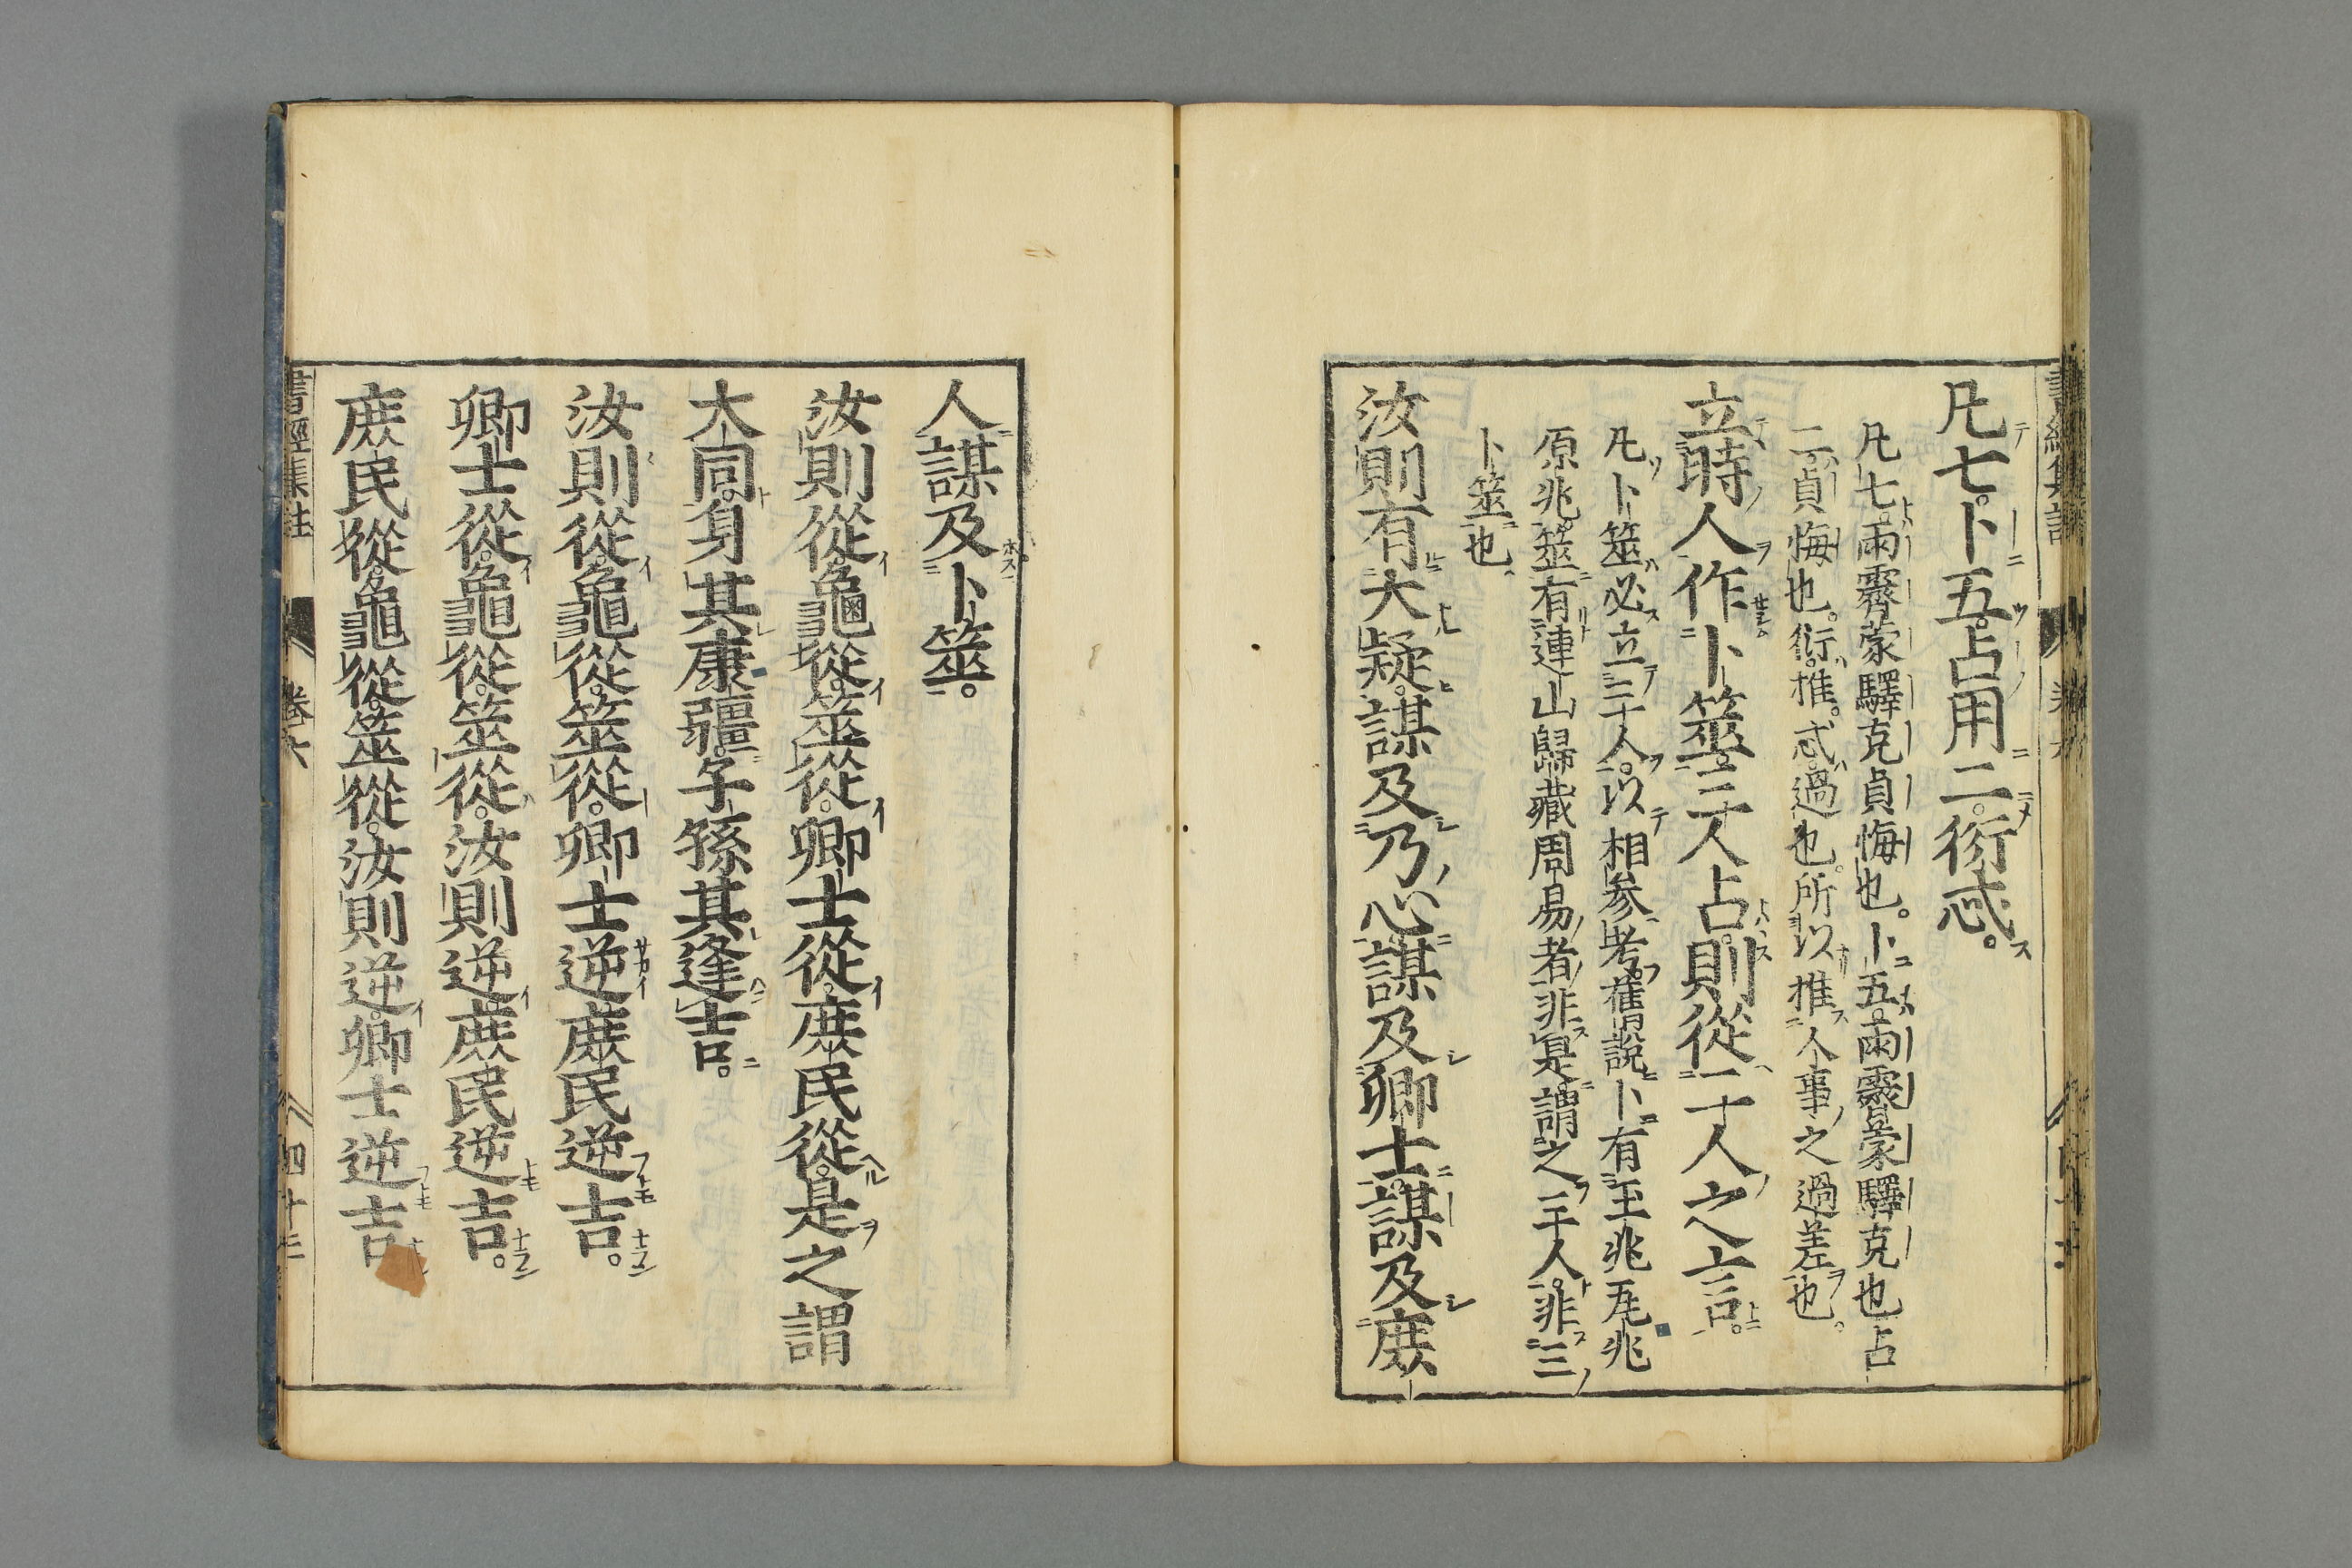 凡七。卜五。占用二。衍忒。
凡七。雨霽蒙驛克貞悔也。卜五。雨霽蒙驛克也占
二。貞悔也。衍。推。忒。過也。所以推人事之過差也。
立時人作卜筮。三人占。則從二人之言。
凡卜筮必立三人。以相參考。舊說卜有玉兆瓦兆
原兆。筮有連山歸藏周易者非是謂之三人。非三
卜筮也
汝則有大疑。謀及乃心。謀及卿士。謀及庶
人。謀及卜筮。
汝則從。龜從。筮從。卿士從。庶民從。是之謂
大同。身其康彊。子孫其逢吉。
汝則從。龜從。筮從。卿士逆庶民逆吉。
卿士從。龜從。筮從。汝則逆庶民逆吉。
庶民從。龜從。筮從。汝則逆。卿士逆吉
書經集註 卷六 四十三